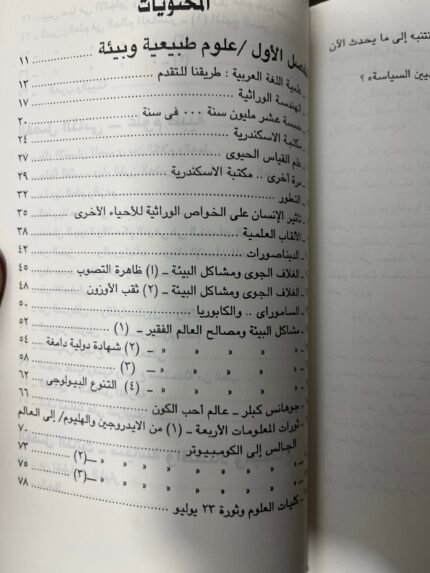 المحتويات
الفصل الأول / علوم طبيعية وبيئة ١١
ـ علمية اللغة العربية : طريقنا للتقدم ١٣
ـ الهندسة الوراثية ١٧
ـ خمسة عشر مليون سنة .... فى سنة ٢٠
ـ مكتبة الاسكندرية ٢٤
ـ علم القياس الحيوى ٢٧
ـ مرة أخرى .. مكتبة الاسكندرية ٢٩
ـ التطور ٣٢
ـ تأثير الإنسان على الخواص الوراثية للأحياء الأخرى ٣٥
ـ الألقاب العلمية ٣٨
ـ الديناصورات ٤٢
ـ الغلاف الجوى ومشاكل البيئة ـ (١) ظاهرة التصوب ٤٥
ـ الغلاف الجوى ومشاكل البيئة ـ (٢) ثقب الأوزون ٤٨
ـ الساموراى .. والكابوريا ٥٠
ـ مشاكل البيئة ومصالح العالم الفقير ـ (١) ٥٢
ـ » » » » » ـ (٢) شهادة دولية دامغة ٥٤
ـ » » » » » ـ (٣) ٥٨
ـ » » » » » ـ (٤) التنوع البيولوجى ٦٢
ـ جوهانس كبلر ـ عالم أحب الكون ٦٦
ـ ثورات المعلومات الأربعة ـ (١) من الايدروجين والهليوم/ إلى العالم
الجالس إلى الكومبيوتر ٧٠
ـ » » » » » » ـ(٢) ٧٣
ـ » » » » » » ـ(٣) ٧٥
ـ كليات العلوم وثورة ٢٣ يوليو ٧٨
نتنبه إلى ما يحدث الآن
ديين السياسة» ؟